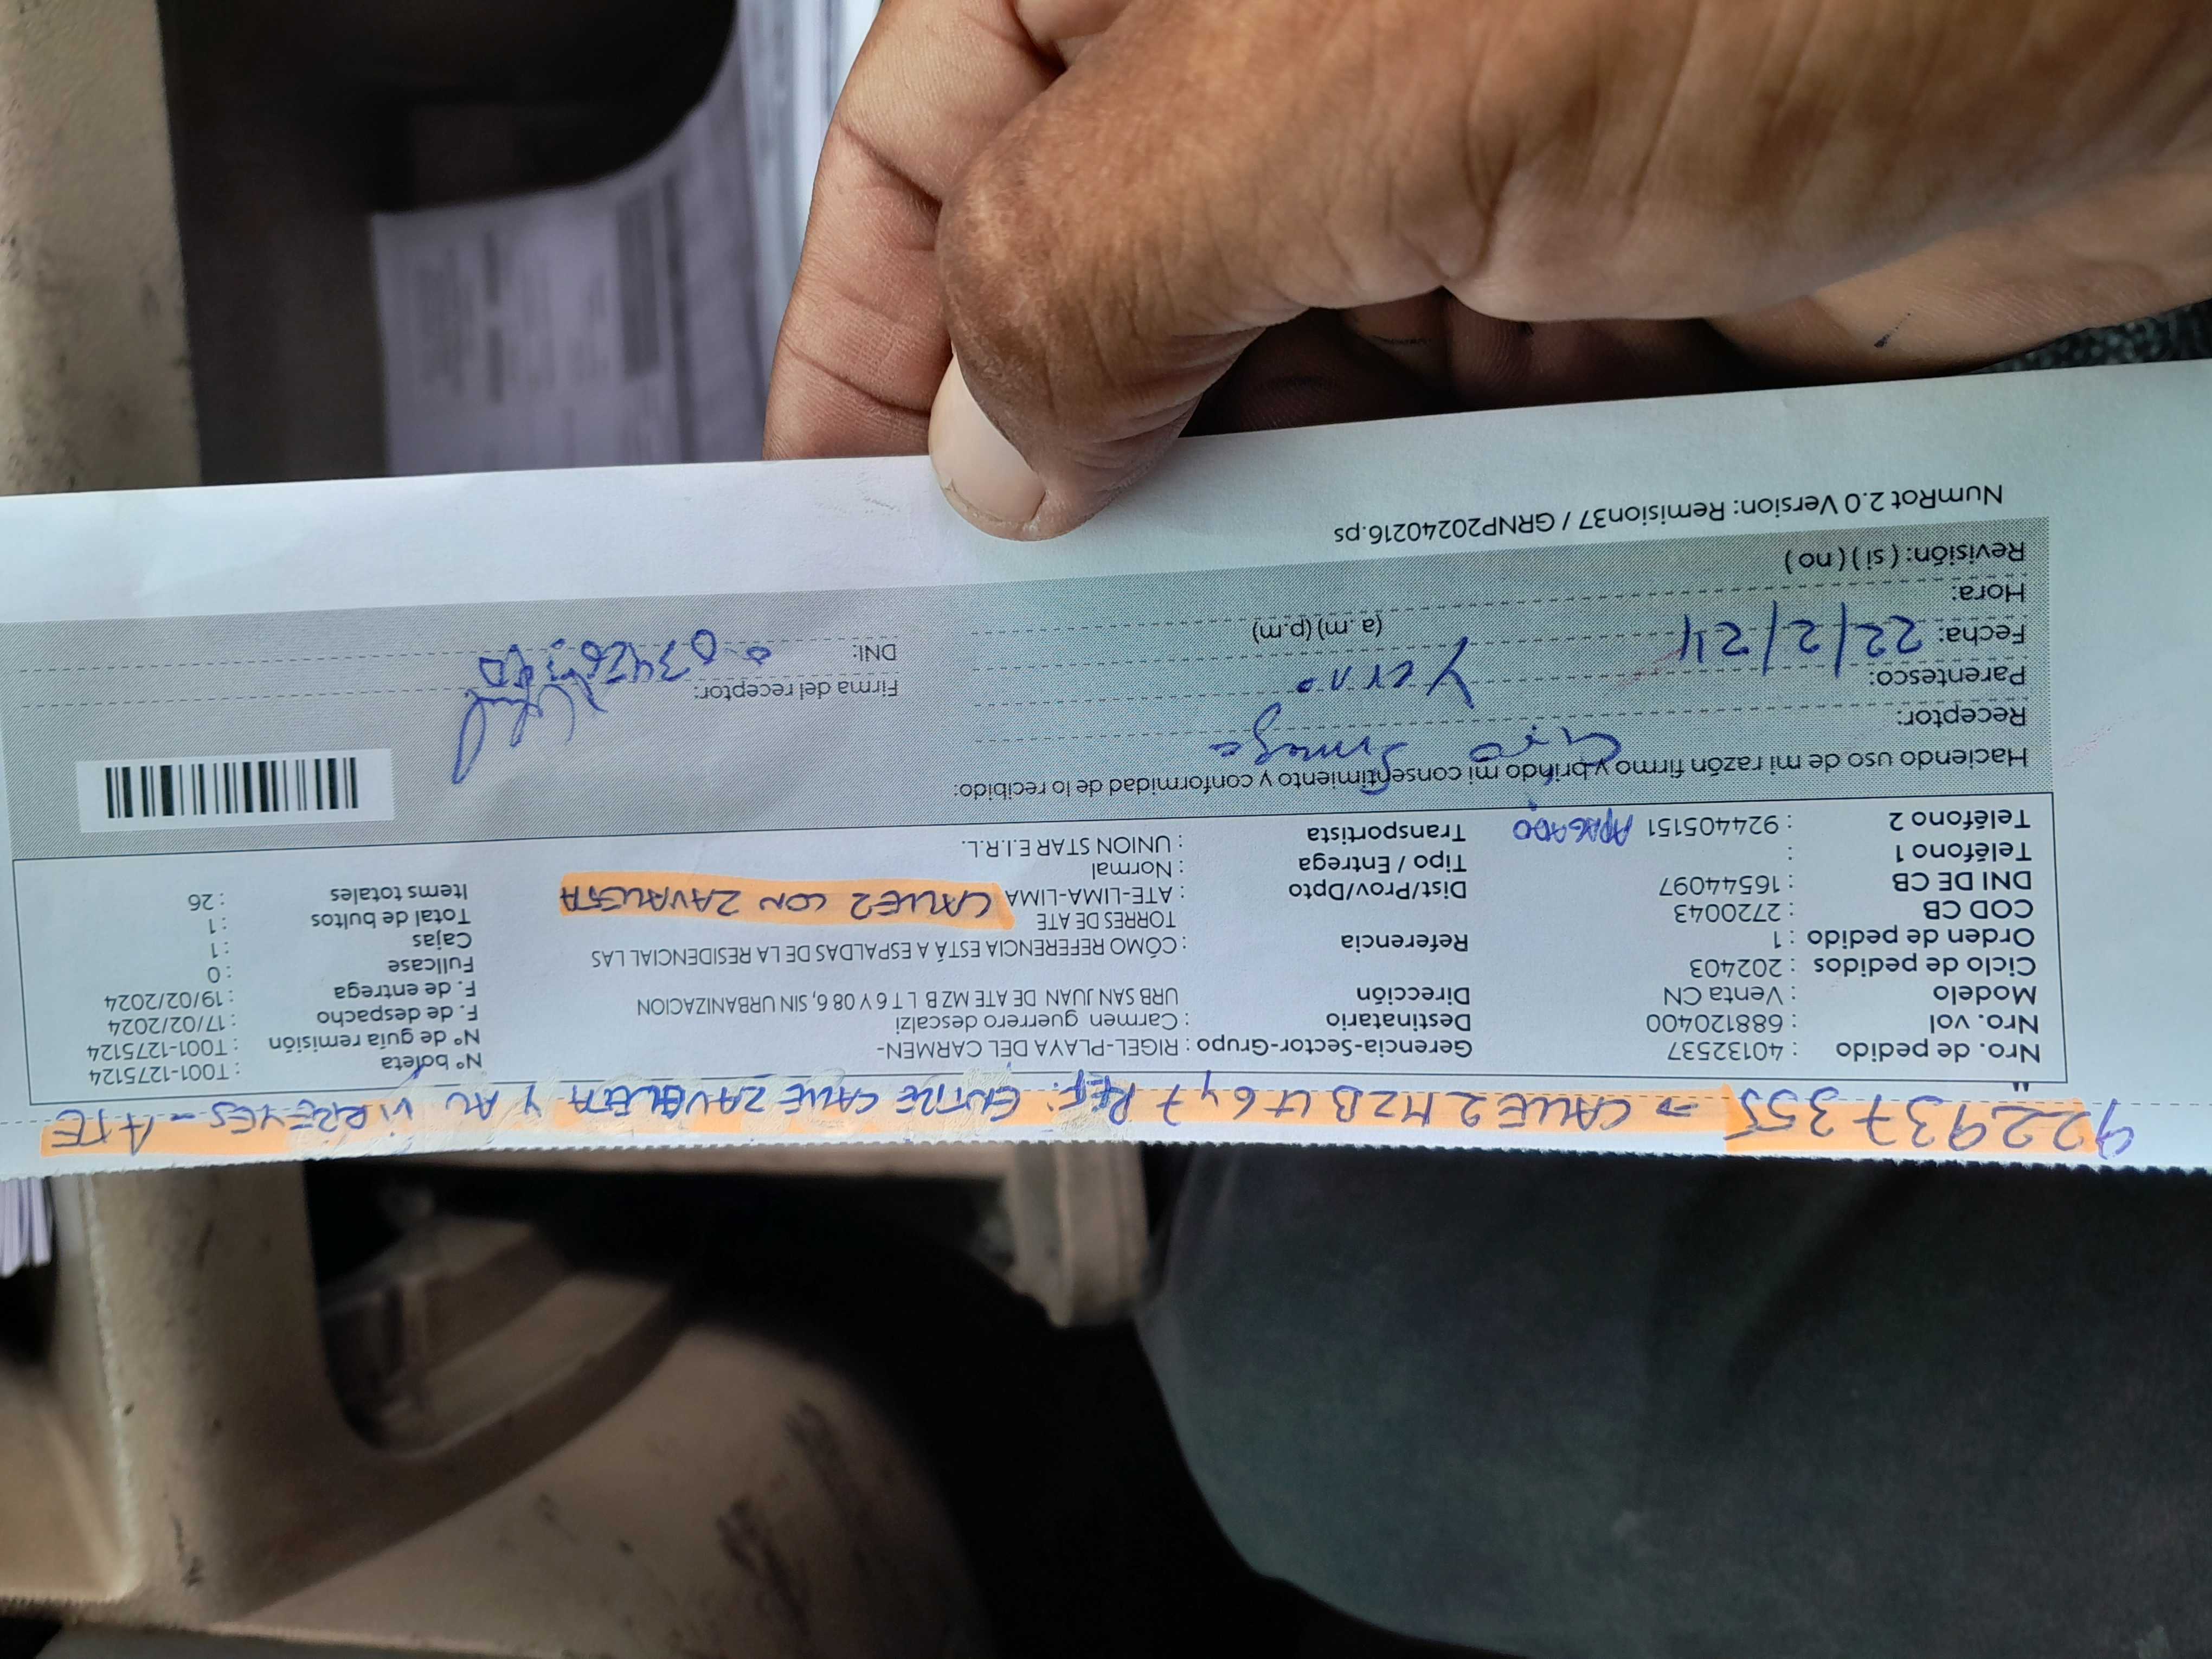 922937355 → CALLE 2 MZ B LT 6 y 7 REF: ENTRE CALLE ZAVALETA Y AV VIRREYES - ATE
Nro. de pedido : 40132537
Nro. vol : 688120400
Modelo : Venta CN
Ciclo de pedidos : 202403
Orden de pedido : 1
COD CB : 2720043
DNI DE CB : 16544097
Teléfono 1 :
Teléfono 2 : 924405151 APAGADO
Gerencia-Sector-Grupo : RIGEL-PLAYA DEL CARMEN-
Destinatario : Carmen guerrero descalzi
Dirección URB SAN JUAN DE ATE MZ B L T 6 Y 08 6, SIN URBANIZACION
Referencia : CÓMO REFERENCIA ESTÁ A ESPALDAS DE LA RESIDENCIAL LAS
TORRES DE ATE
Dist/Prov/Dpto : ATE-LIMA-LIMA CALLE 2 CON ZAVALETA
Tipo / Entrega : Normal
Transportista : UNION STAR E.I.R.L.
Nº boleta : T001-1275124
Nº de guía remisión : T001-1275124
F. de despacho : 17/02/2024
F. de entrega : 19/02/2024
Fullcase : 0
Cajas : 1
Total de bultos : 1
Items totales : 26
Haciendo uso de mi razón firmo y brindo mi consentimiento y conformidad de lo recibido:
Receptor:
Parentesco: Yerno
Fecha: 22/2/24
Hora: (a. m) (p.m)
Revisión: ( si ) ( no )
Firma del receptor:
DNI:
NumRot 2.0 Version: Remision37 / GRNP20240216.ps